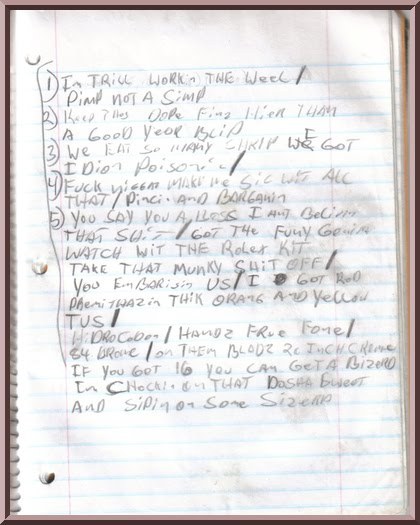 1) Im TRILL WORKN THE Weel/
PIMP NOT A SIMP
2) Keep THIS DOPE Fing HIER THAN
A GOOD YEOR BLIP
3) We EAT SO MANY SHRIP WE GOT
IDION POISONIC/
4) FUCK niggas MAKE me SIC WIT ALL
THAT/PINCIN AND BARGANIN
5) YOU SAY YOU A BOSS I AINT BELIVIN
THAT SHIT/GOT THE FUNY GOWIN
WATCH WIT THE ROLEX KIT
TAKE THAT MUNKY SHIT OFF/
YOU EmBARISIN US/I GOT ROD
PHEMITHAZIN THIK ORANG AND Yellow
TUS/
HiDROCODON/HANDZ FRUE FONE/
84 BRONE/ON THEM BLADZ 20 INCH CROME
IF YOU GOT 16 YOU CAN GET A BIZERD
Im CHOCKIN ON THAT DOSHA SWEET
AND SIPIN ON SOME SIZERP